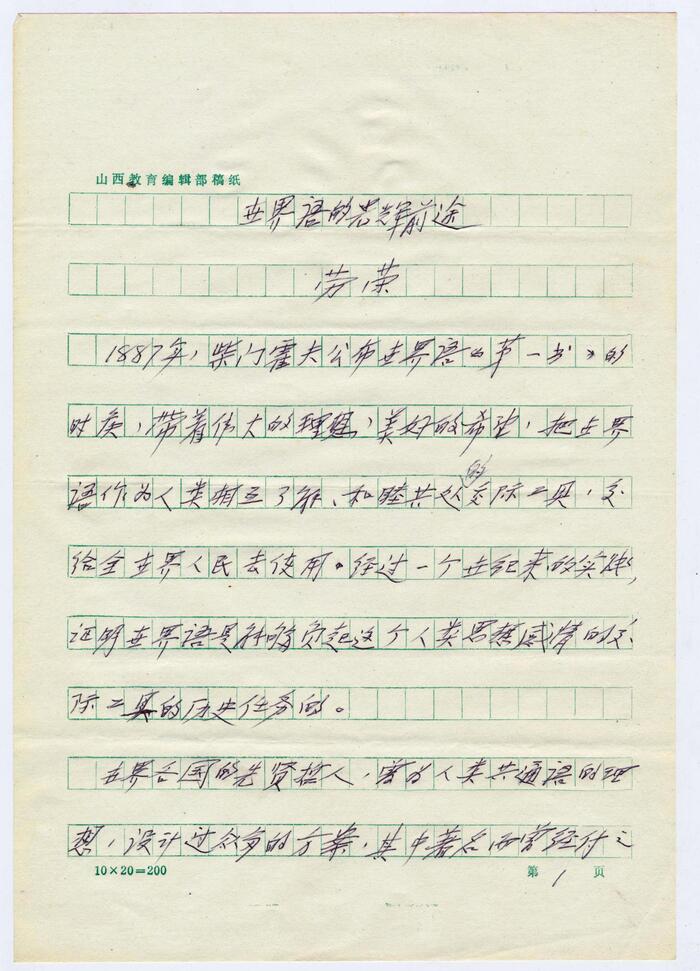 山西教育编辑部稿纸
世界语的光辉前途
劳荣
1887年，柴门霍夫公布世界语《第一书》的
时候，带着伟大的理想，美好的希望，把世界
语作为人类相互了解、和睦共处的交际工具，交
给全世界人民去使用。经过一个世纪来的实践，
证明世界语是能够负起这个人类思想感情的交
际工具的历史任务的。
世界各国的先贤哲人，曾为人类共通语的理
想，设计过众多的方案，其中著名而曾经付之
10×20=200
第1页